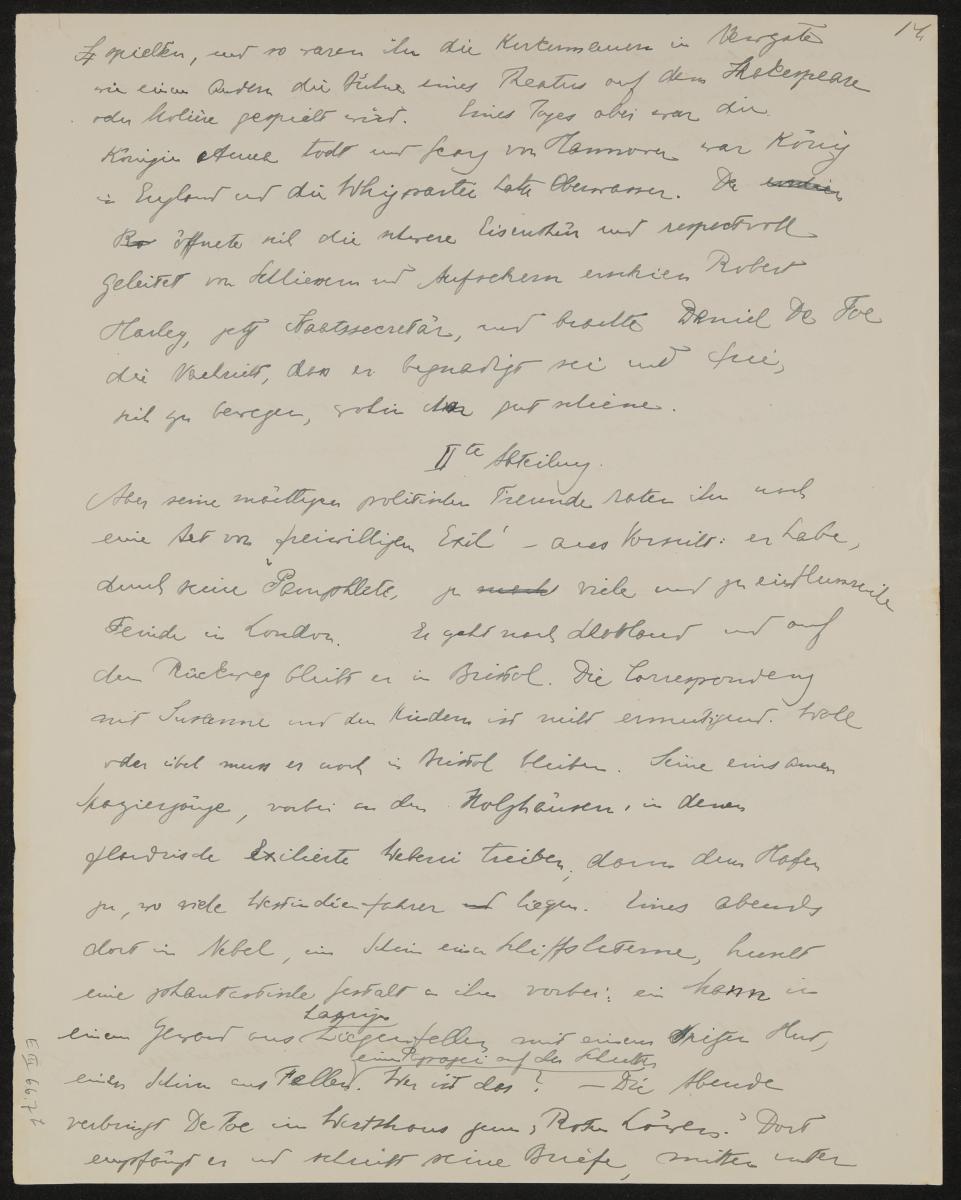 14
spielten, und so waren ihr die Kerkermauern in Newgate
wie einem Andern die Bühne eines Theaters auf dem Shakespeare
oder Molière gespielt wird. Eines Tages aber war die
Königin Anna todt und Georg von Hannover war König
in England und die Whigpartei hatte Oberwasser. Da erschien
Ro öffnete sich die schwere Eisenthür und respectvoll
geleitet von Schliessern und Aufsehern erschien Robert
Harley, jetzt Staatssecretär, und brachte Daniel De Foe
die Nachricht, dass er begnadigt sei und frei,
sich zu bewegen, wohin ihm gut schiene.
IIte Abteilung.
Aber seine mächtigen politischen Freunde raten ihm noch
eine Art von freiwilligem Exil – aus Vorsicht: er habe,
durch seine Pamphlete, zu viele und zu einflussreiche
Feinde in London. Er geht nach Schottland und auf
dem Rückweg bleibt er in Bristol. Die Correspondenz
mit Susanne und den Kindern ist nicht ermutigend. Wohl
oder übel muss er noch in Bristol bleiben. Seine einsamen
Spaziergänge, vorbei an den Holzhäusern, in denen
flandrische Exilierte Weberei treiben, dann dem Hafen
zu, wo viele Westindienfahrer liegen. Eines abends
dort im Nebel, im Schein einer Schiffslaterne, huscht
eine phantastische Gestalt an ihm vorbei: ein Mann in
einem Gewand aus Ziegenfellen mit einem Hut,
einen Papagei auf der Schulter
einen Schirm aus Fellen. Wer ist das? – Die Abende
verbringt De Foe im Wirtshaus zum „Roten Löwen." Dort
empfängt er und schreibt seine Briefe, mitten unter
EIII 66.71